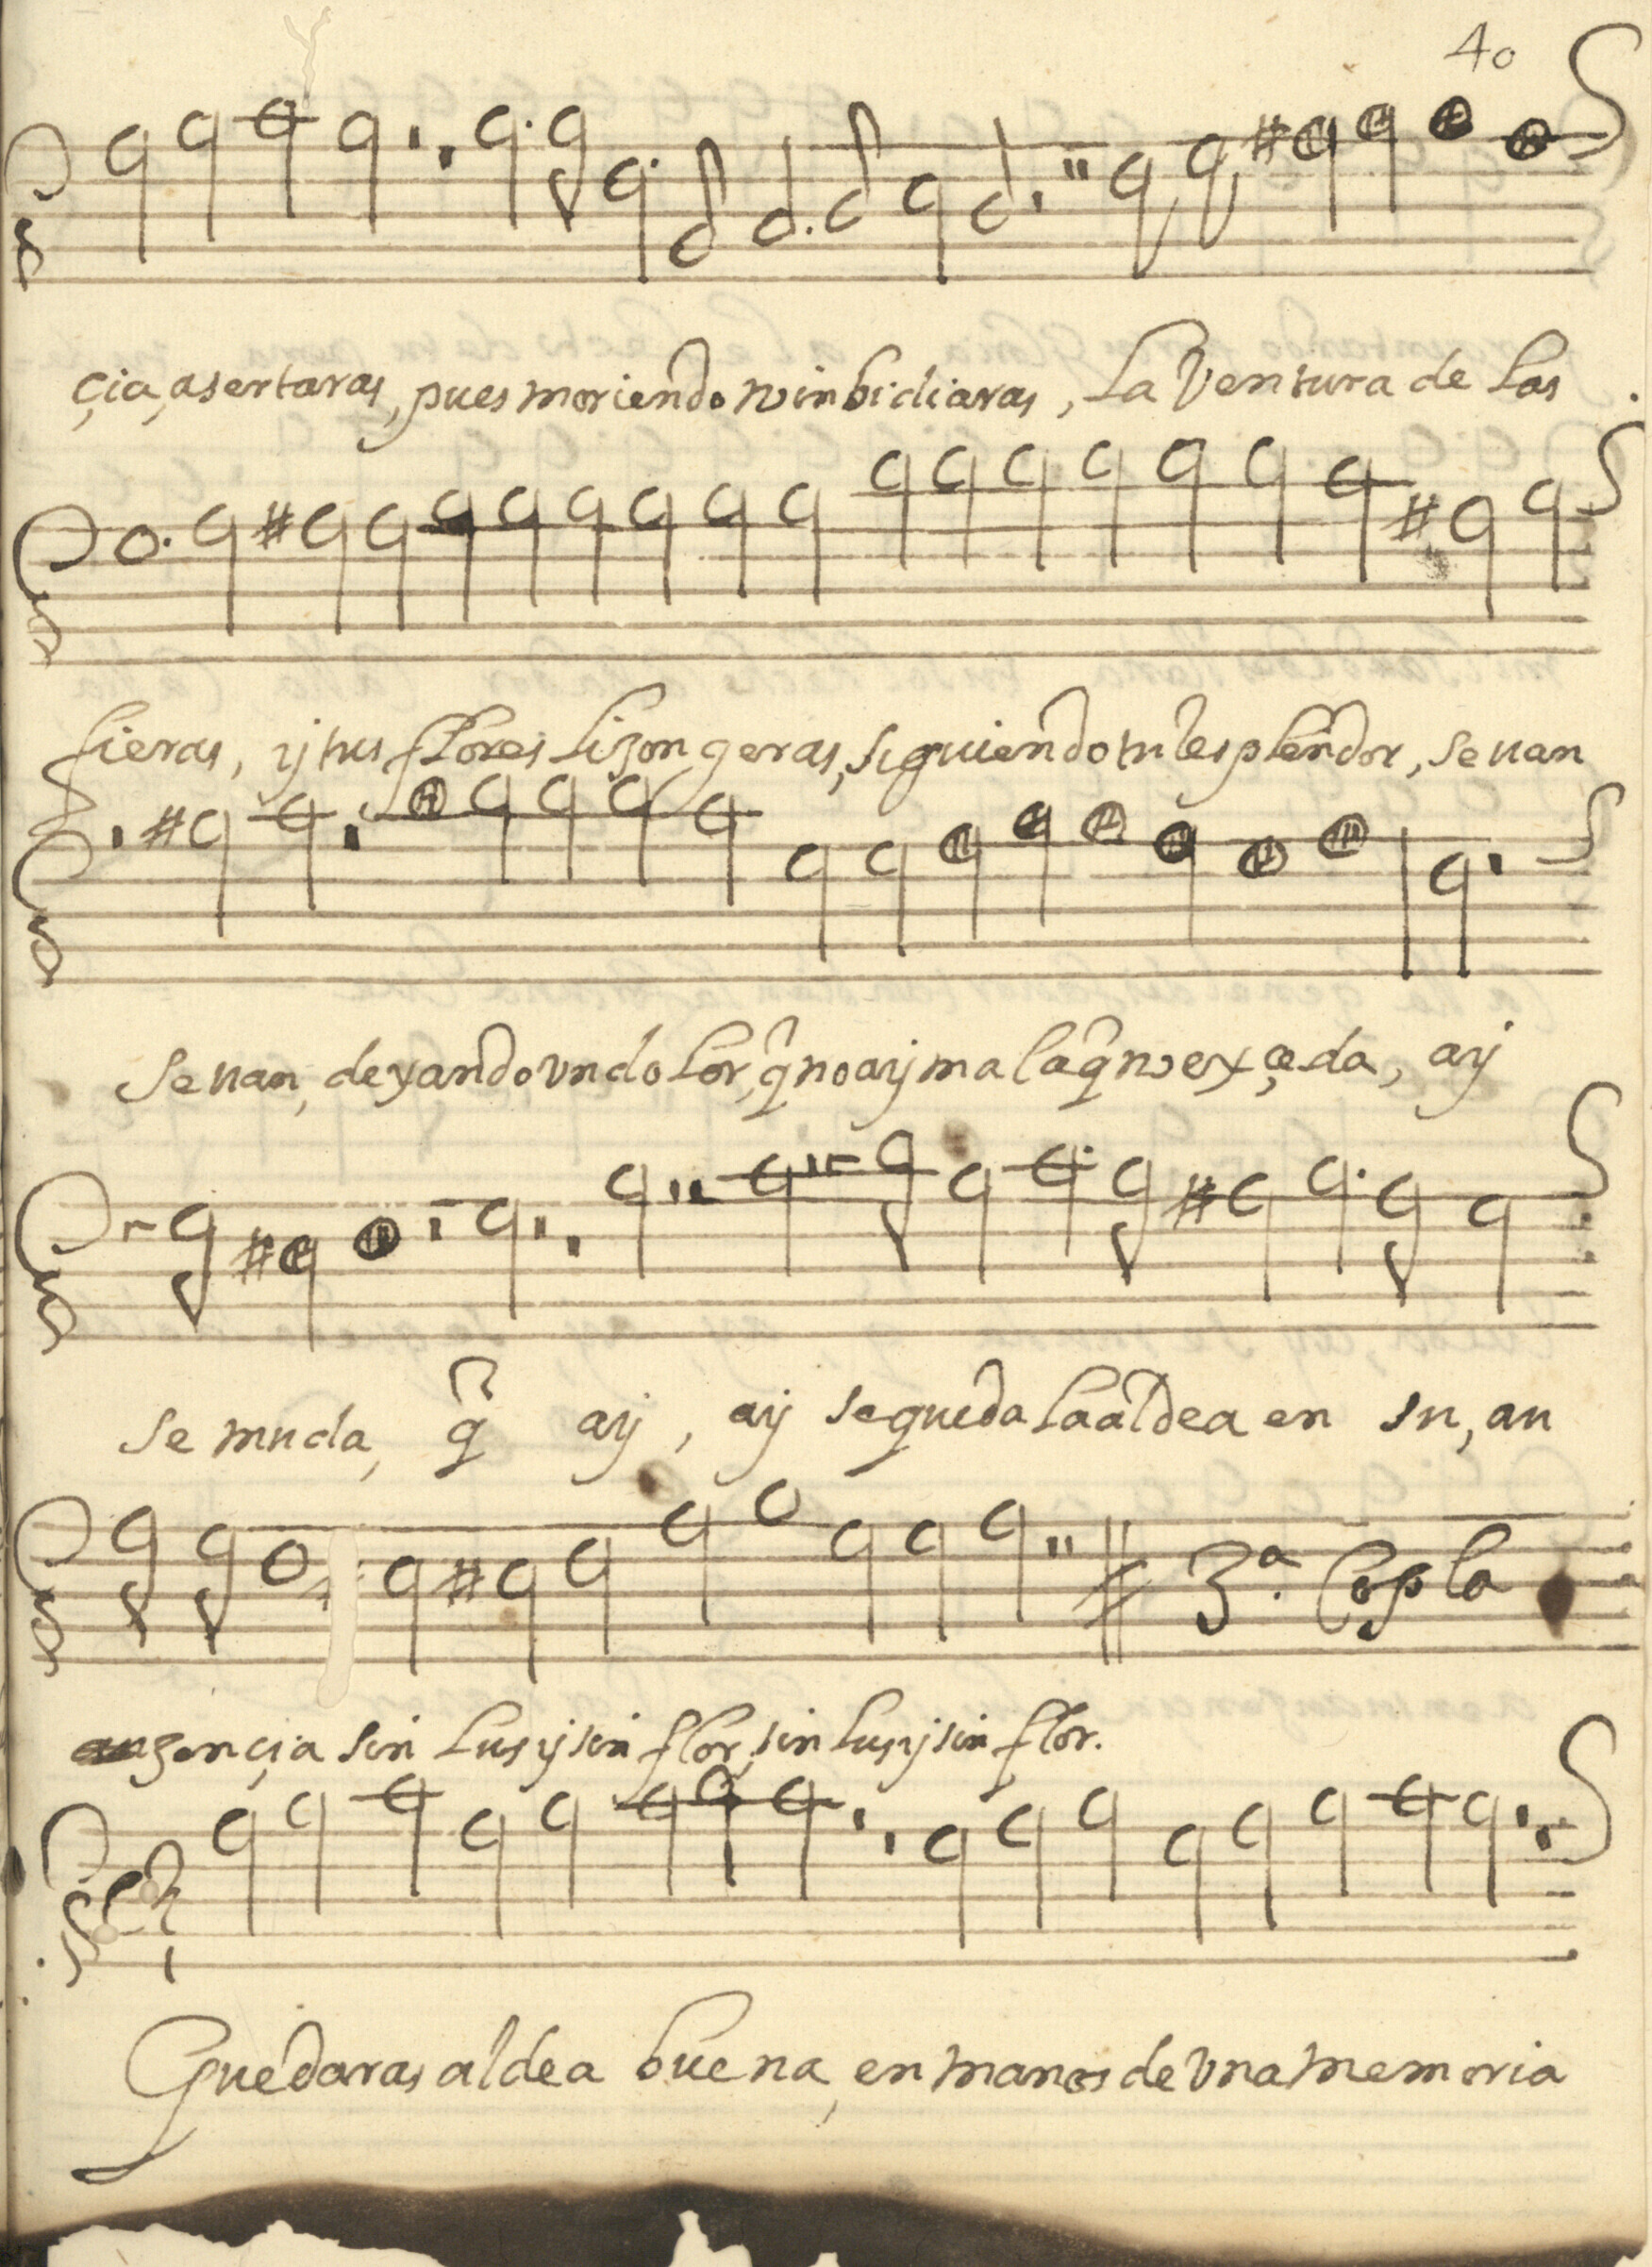 40
çia, asertaras, pues moriendo no inbidiaras, La Ventura de Las
fieras, ij tus flores Lizongeras, siguiendo tu resplendor, se uan
se uan, dexando vn dolor, q̃ no aij mal a q̃ no exçeda, aij
se muda, q̃ aij, aij se queda La aldea en su, au
auzençia sin Lus ij sin flor, sin Lus ij sin flor.
3ª. Copla
Quedaras aldea buena, en manos de vna memoria